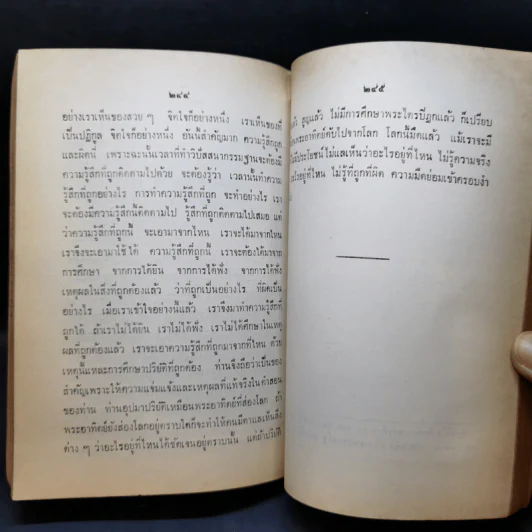 ๒๔๔
อย่างเราเห็นของสวย ๆ จิตใจก็อย่างหนึ่ง เราเห็นของที่
เป็นปฏิกูล จิตใจก็อย่างหนึ่ง อันนี้สำคัญมาก ความรู้สึกถูก
และผิดนี้ เพราะฉะนั้นเวลาที่ทำวิปัสสนากรรมฐานจะต้องมี
ความรู้สึกที่ถูกติดตามไปด้วย จะต้องรู้ว่า เวลานั้นทำความ
รู้สึกที่ถูกอย่างไร การทำความรู้สึกที่ถูก จะทำอย่างไร เรา
จะต้องมีความรู้สึกนี้ติดตามไป รู้สึกที่ถูกติดตามไปเสมอ แต่
ว่าความรู้สึกที่ถูกนี้ จะเอามาจากไหน เราจะได้มาจากไหน
เราจึงจะเอามาใช้ได้ ความรู้สึกที่ถูกนี้ เราจะต้องได้มาจาก
การศึกษา จากการได้ยิน จากการได้ฟัง จากการได้ฟัง
เหตุผลในสิ่งที่ถูกต้องแล้ว ว่าที่ถูกเป็นอย่างไร ที่ผิดเป็น
อย่างไร เมื่อเราเข้าใจอย่างนี้แล้ว เราจึงมาทำความรู้สึกที่
ถูกได้ ถ้าเราไม่ได้ยิน เราไม่ได้ฟัง เราไม่ได้ศึกษาในเหตุ
ผลที่ถูกต้องแล้ว เราจะเอาความรู้สึกที่ถูกมาจากที่ไหน ด้วย
เหตุนี้แหละการศึกษาปริยัติที่ถูกต้อง ท่านจึงถือว่าเป็นของ
สำคัญเพราะให้ความแจ่มแจ้งและเหตุผลที่แท้จริงในคำสอน
ของท่าน ท่านอุปมาปริยัติเหมือนพระอาทิตย์ที่ส่องโลก ถ้า
พระอาทิตย์ยังส่องโลกอยู่ตราบใดก็จะทำให้คนมีตาแลเห็นสิ่ง
ต่าง ๆ ว่าอะไรอยู่ที่ไหนได้ชัดเจนอยู่ตราบนั้น แต่ถ้าปริยัติ
๒๔๕
แล้ว สูญแล้ว ไม่มีการศึกษาพระไตรปิฎกแล้ว ก็เปรียบ
พระอาทิตย์ดับไปจากโลก โลกนี้มืดแล้ว แม้เราจะมี
ไม่มีประโยชน์ ไม่แลเห็นว่าอะไรอยู่ที่ไหน ไม่รู้ความจริง
อยู่ที่ไหน ไม่รู้ที่ถูกที่ผิด ความมืดย่อมเข้าครอบงำ